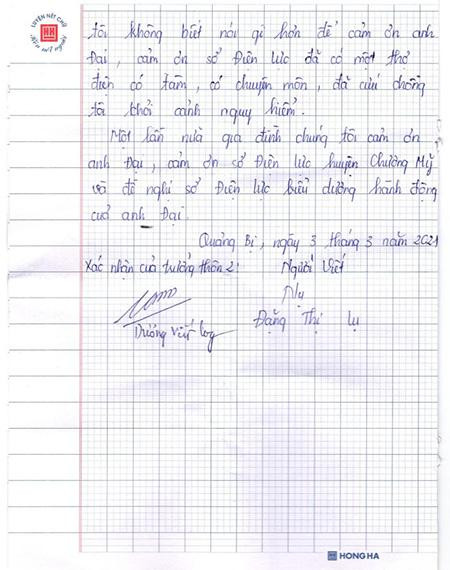 LUYỆN NÉT CHỮ
RÈN NẾT NGƯỜI
HH
tôi không biết nói gì hơn để cảm ơn anh
Đại, cảm ơn sở Điện lực đã có một thợ
điện có tâm, có chuyên môn, đã cứu chồng
tôi khỏi cảnh nguy hiểm.
Một lần nữa gia đình chúng tôi cảm ơn
anh Đại, cảm ơn sở Điện lực huyện Chương Mỹ
và đề nghị sở Điện lực biểu dương hành động
của anh Đại.
Quảng Bị, ngày 3 tháng 3 năm 2021
Xác nhận của trưởng thôn 2: Người Viết
Dương Viết
Đặng Thị Lụ
HH HONG HA